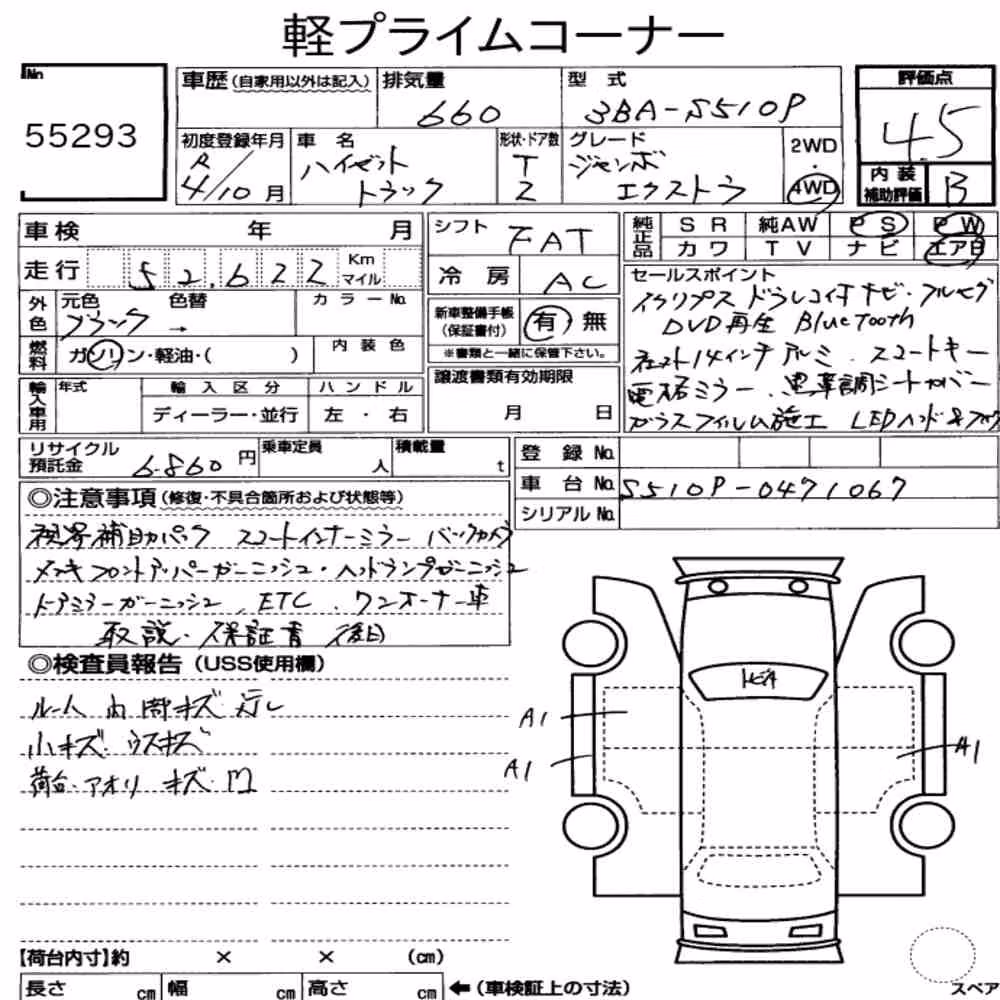 軽プライムコーナー
No
55293
車歴(自家用以外は記入)
排気量
660
型 式
3BA-S510P
評価点
4.5
初度登録年月
R
4/10月
車 名
ハイゼット
トラック
形状・ドア数
T
2
グレード
ジャンボ
エクストラ
2WD
・
4WD
内 装
補助評価
B
車検 年 月
走行 52,622 Km
マイル
シフト FAT
冷 房 AC
純正品
SR 純AW PS PW
カワ TV ナビ エアB
外色
元色 色替
ブラック →
カラーNo.
燃料
ガソリン・軽油・( )
内 装 色
新車整備手帳
(保証書付)
有 無
※書類と一緒に保管下さい。
セールスポイント
イクリプス ドラレコ付ナビ・フルセグ
DVD再生 Bluetooth
社外14インチアルミ・スマートキー
電格ミラー・黒革調シートカバー
ガラスフィルム施工 LEDヘッド&フォグ
輸入車用
年式
輸 入 区 分
ハ ン ド ル
ディーラー・並行
左 ・ 右
譲渡書類有効期限
月 日
リサイクル
預託金
6.860円
乗車定員
人
積載量
t
登 録 No.
車 台 No. S510P-0471067
シリアル No.
◎注意事項(修復・不具合箇所および状態等)
視界補助パック スマートインナーミラー バックカメラ
メッキフロントアッパーガーニッシュ・ヘッドランプガーニッシュ
ドアミラーガーニッシュ、ETC、ワンオーナー車
取説・保証書 後日
◎検査員報告(USS使用欄)
ルーム内 キズ
小キズ ウスキズ
荷台・アオリ キズ・凹
トビA
A1
A1
A1
【荷台内寸】約 × × (cm)
長さ cm 幅 cm 高さ cm ←(車検証上の寸法)
スペア